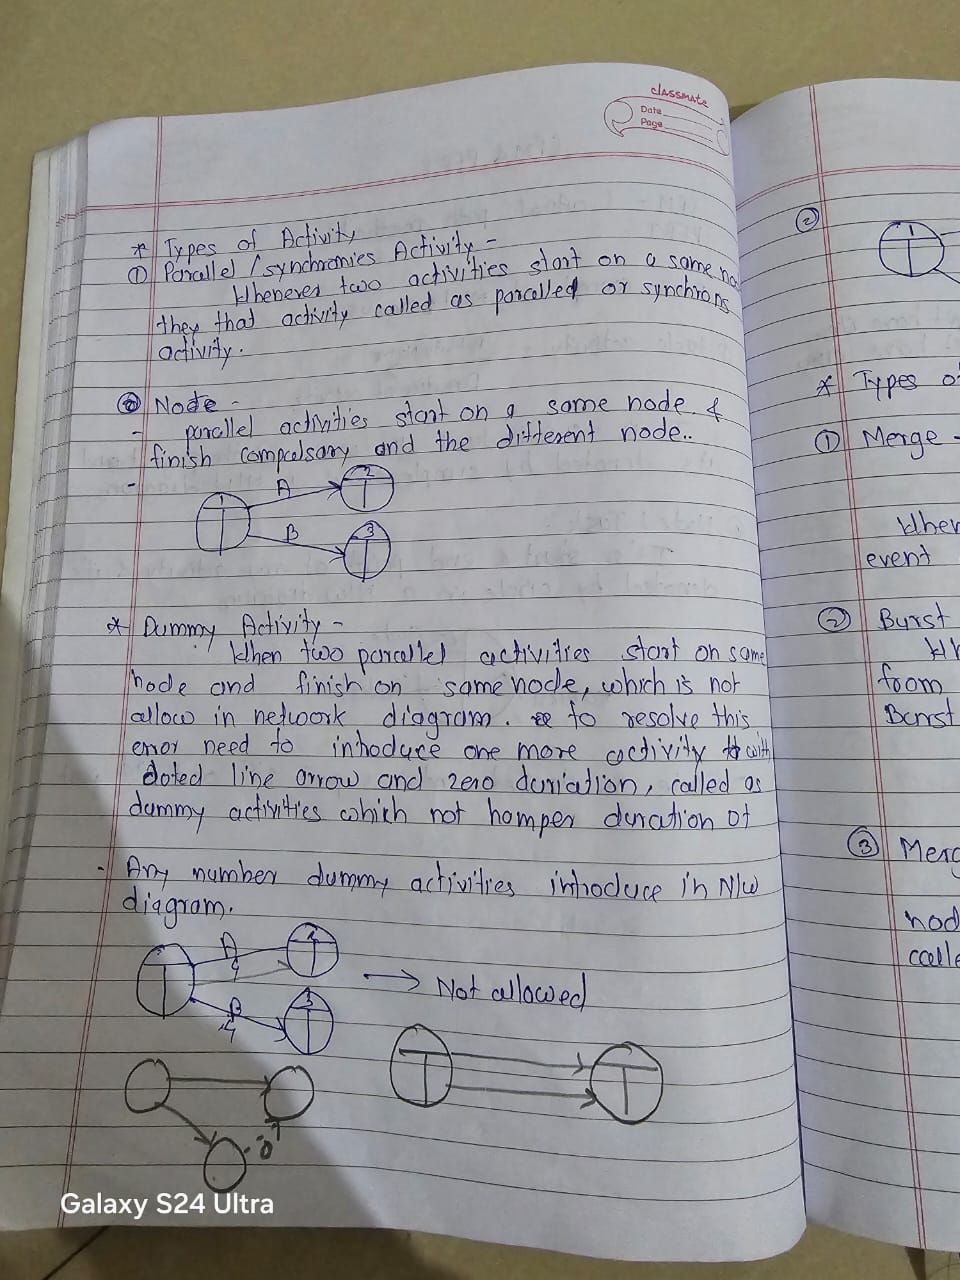 classmate
Date
Page
* Types of Activity
① Parallel / synchronies Activity -
Whenever two activities start on a same no
they that activity called as parcelled or synchrons
activity.
② Node -
- parallel activities start on a same node &
finish compulsary and the different node..
-
A
1
2
B
3
* Dummy Activity -
When two parcellel activities start on same
node and finish on same node, which is not
allow in network diagram. to resolve this
error need to introduce one more activity with
doted line arrow and zero duriation, called as
dummy activities which not hamper duration of
- Any number dummy activities introduce in N/W
diagram.
A
B
3
→ Not allowed
0
②
1
* Types of
① Merge -
When
event
② Burst
Wh
from
Burst
③ Merg
nod
calle
Galaxy S24 Ultra